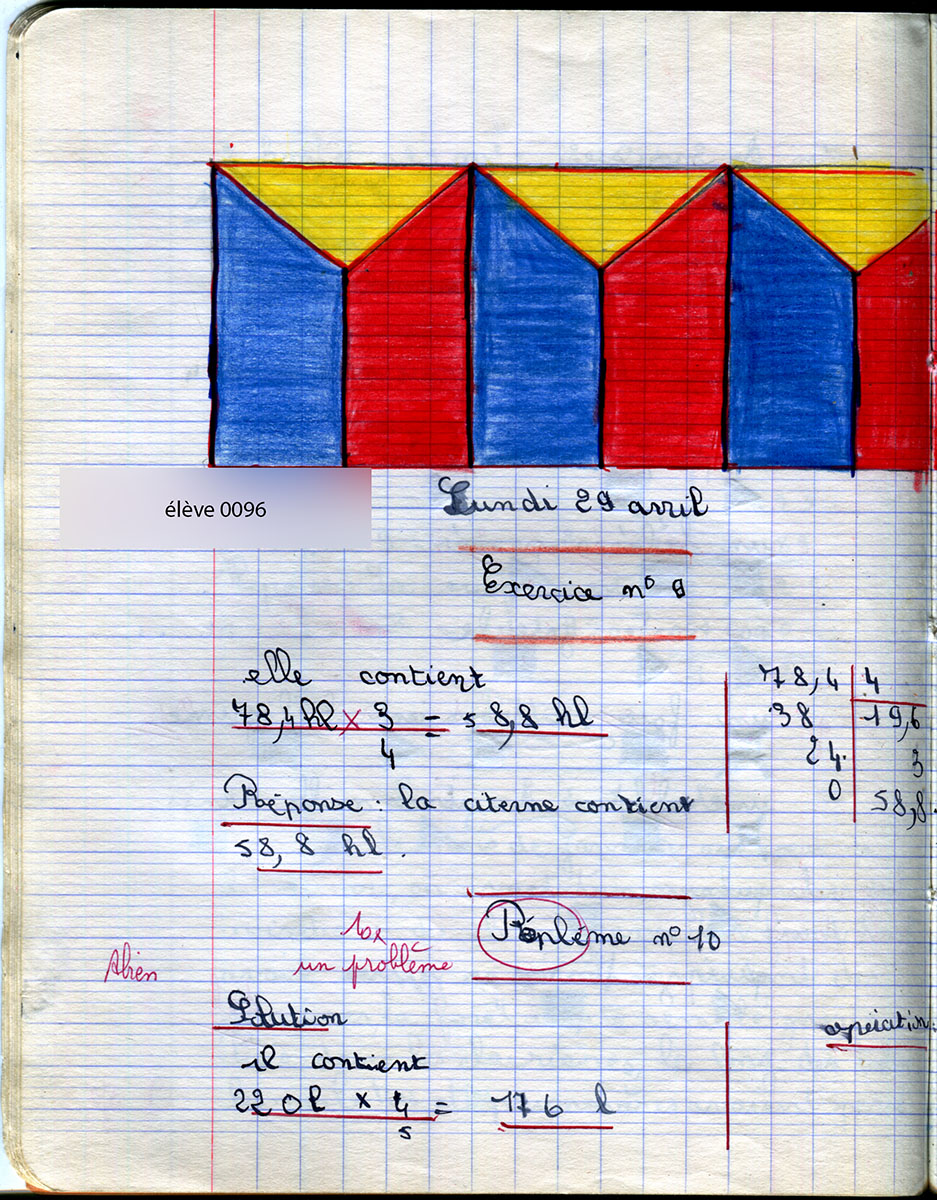 élève 0096
Lundi 29 avril
Exercice n° 9
elle contient
78,4 hl × 3/4 = 58,8 hl
Réponse : la citerne contient
58,8 hl.
78,4 | 4
38 | 19,6
24 | 3
0 | 58,8
10x
un problème
Poplème n° 10
Abien
Solution
opération :
il contient
220 l × 4/5 = 176 l